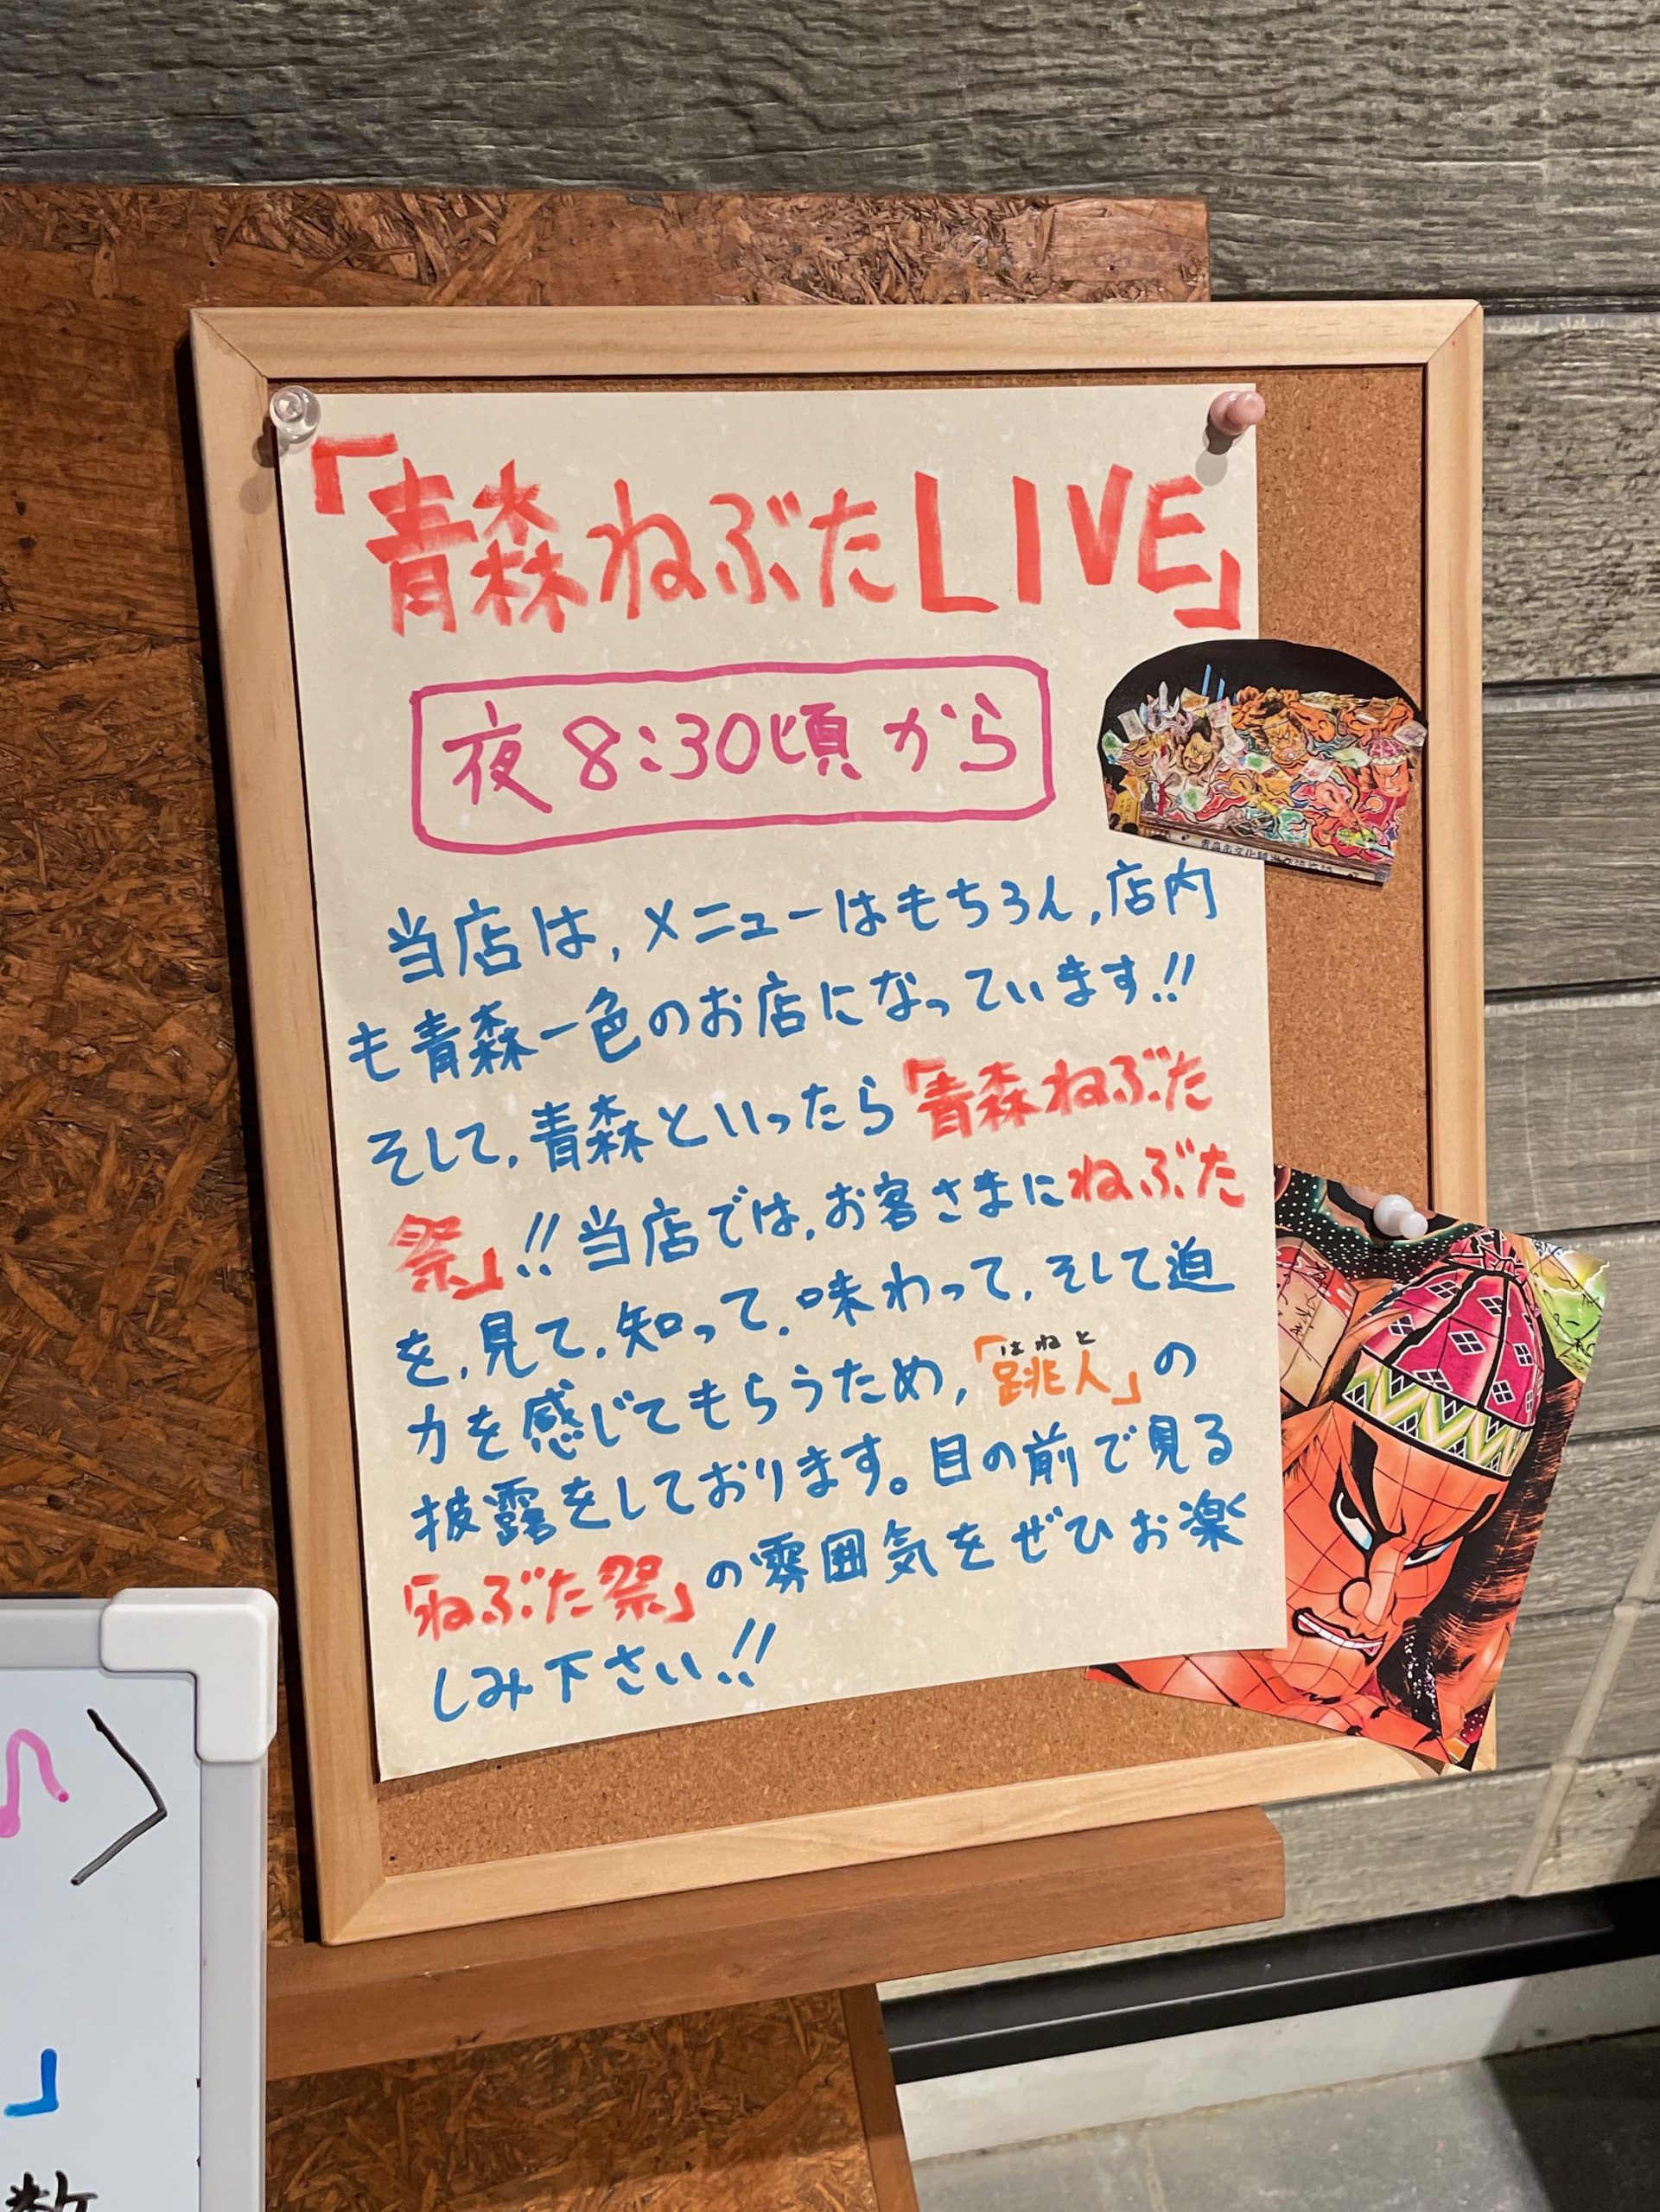 「青森ねぶたLIVE」
夜8:30頃から
当店は,メニューはもちろん,店内
も青森一色のお店になっています!!
そして,青森といったら「青森ねぶた
祭」!!当店では,お客さまにねぶた
を,見て,知って,味わって,そして迫
力を感じてもらうため,「跳人」の
はねと
披露をしております。目の前で見る
「ねぶた祭」の雰囲気をぜひお楽
しみ下さい!!
♪
」
数